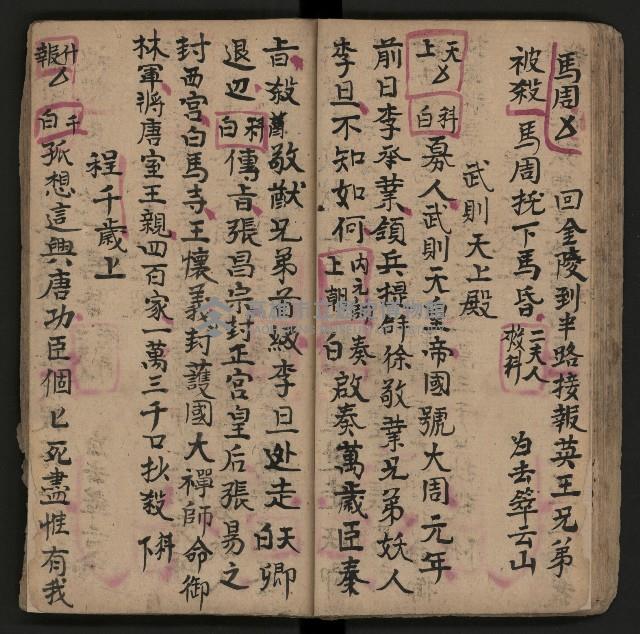 馬周上 回金陵到半路接報英王兄弟
被殺 馬周托下馬昏 二夫人 救科 为去翠云山
武則天上殿
天上 科白 募人武則天皇帝國號大周元年
前日李承業領兵提群徐敬業兄弟妖人
李旦不知如何 內元 上朝 奏 白 啟奏萬歲臣秦
旨殺 敬猷兄弟首級李旦处走 天白 卿
退辺 科白 傳旨張昌宗封正宮皇后張易之
封西宮白馬寺王懷義封護國大禪師命御
林軍將唐室王親四百家一萬三千口抄殺 科下
程千歲上
什報 千白 孤想這興唐功臣個匕死盡惟有我
高雄市立歷史博物館